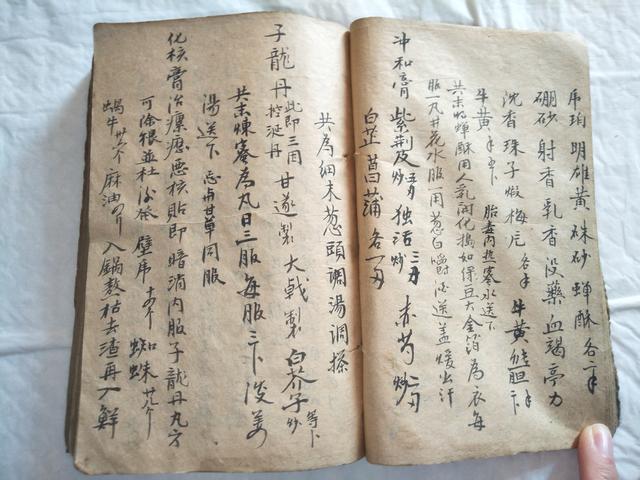 琥珀 明雄黃 硃砂 蟬酥 各一
硼砂 射香 乳香 沒藥 血竭 葶力
沈香 珠子 煅 梅片 各 牛黃 熊胆
牛黃 胎毒內熱蜜水送下
共末將蟬酥用人乳開化搗如保豆大金箔為衣每
服一丸井花水服一用葱白嚼 送盖煖出汗
冲和膏 紫荆皮炒 独活炒 赤芍炒
白芷 菖蒲 各一
共為細末葱頭調湯調搽
子龍丹 此即三因控涎丹 甘遂製 大戟製 白芥子炒 等卜
共末煉蜜為丸日三服每服三卜淡姜
湯送下 忌与甘草同服
化核膏治瘰癧惡核貼即暗消內服子龍丹丸方
可除根並杜後發 壁虎 蜘蛛
蝸牛 麻油 入鍋熬枯去渣再入鮮